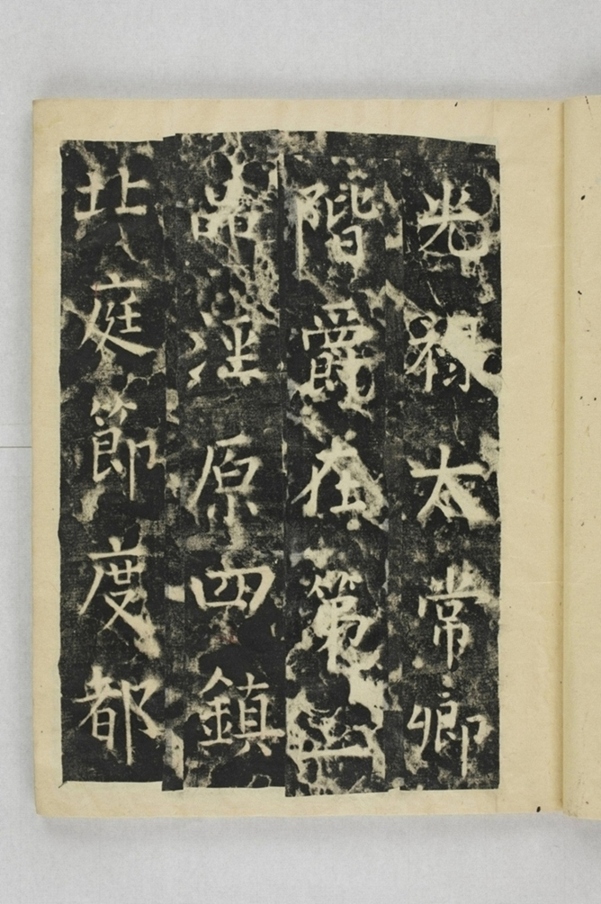 光祿太常卿
階爵在苐三
品涇原四鎮
北庭節度都